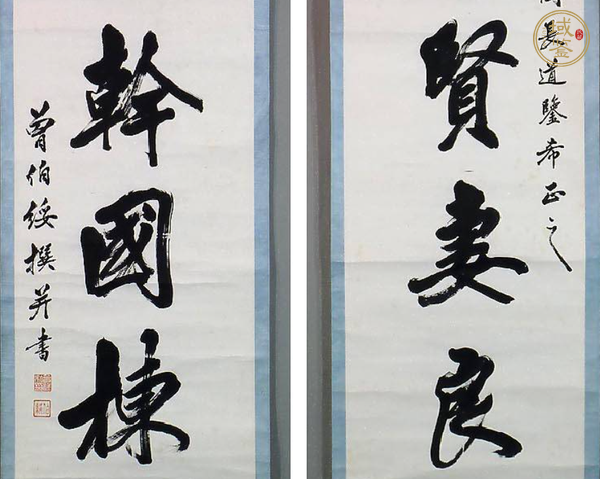 長道鑒希正之
賢妻良
幹國棟
曾伯綏撰并書